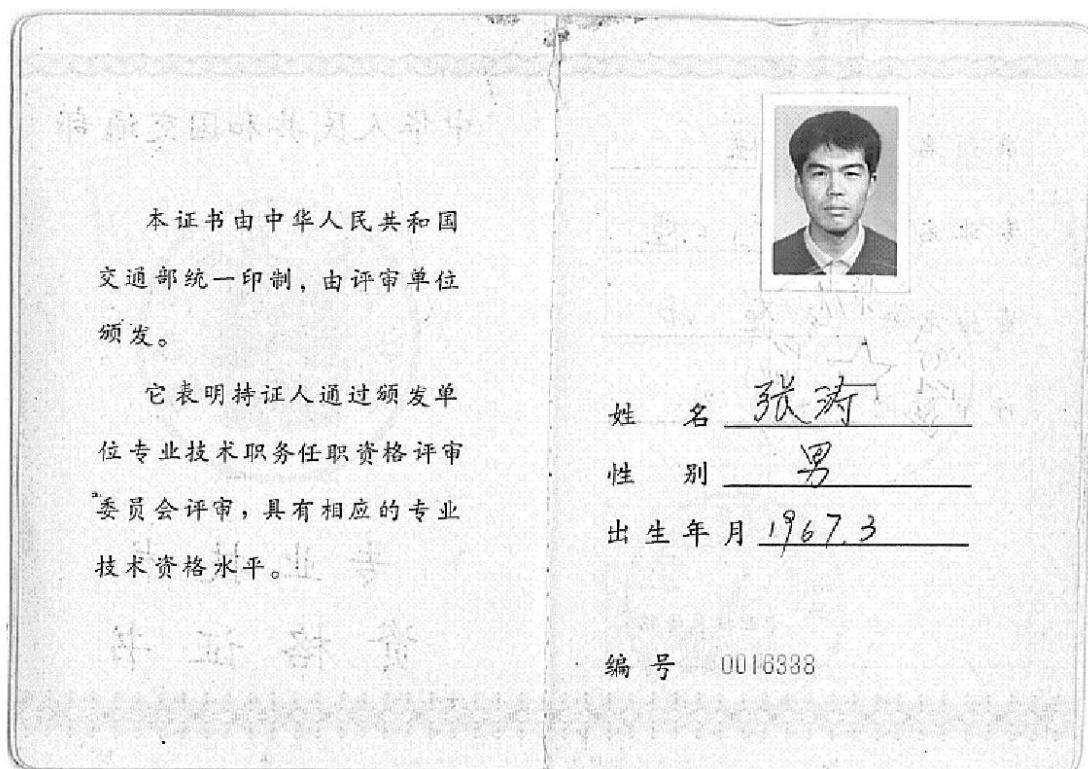 本证书由中华人民共和国
交通部统一印制，由评审单位
颁发。
它表明持证人通过颁发单
位专业技术职务任职资格评审
委员会评审，具有相应的专业
技术资格水平。
姓 名 张涛
性 别 男
出生年月 1967.3
编号 0016338